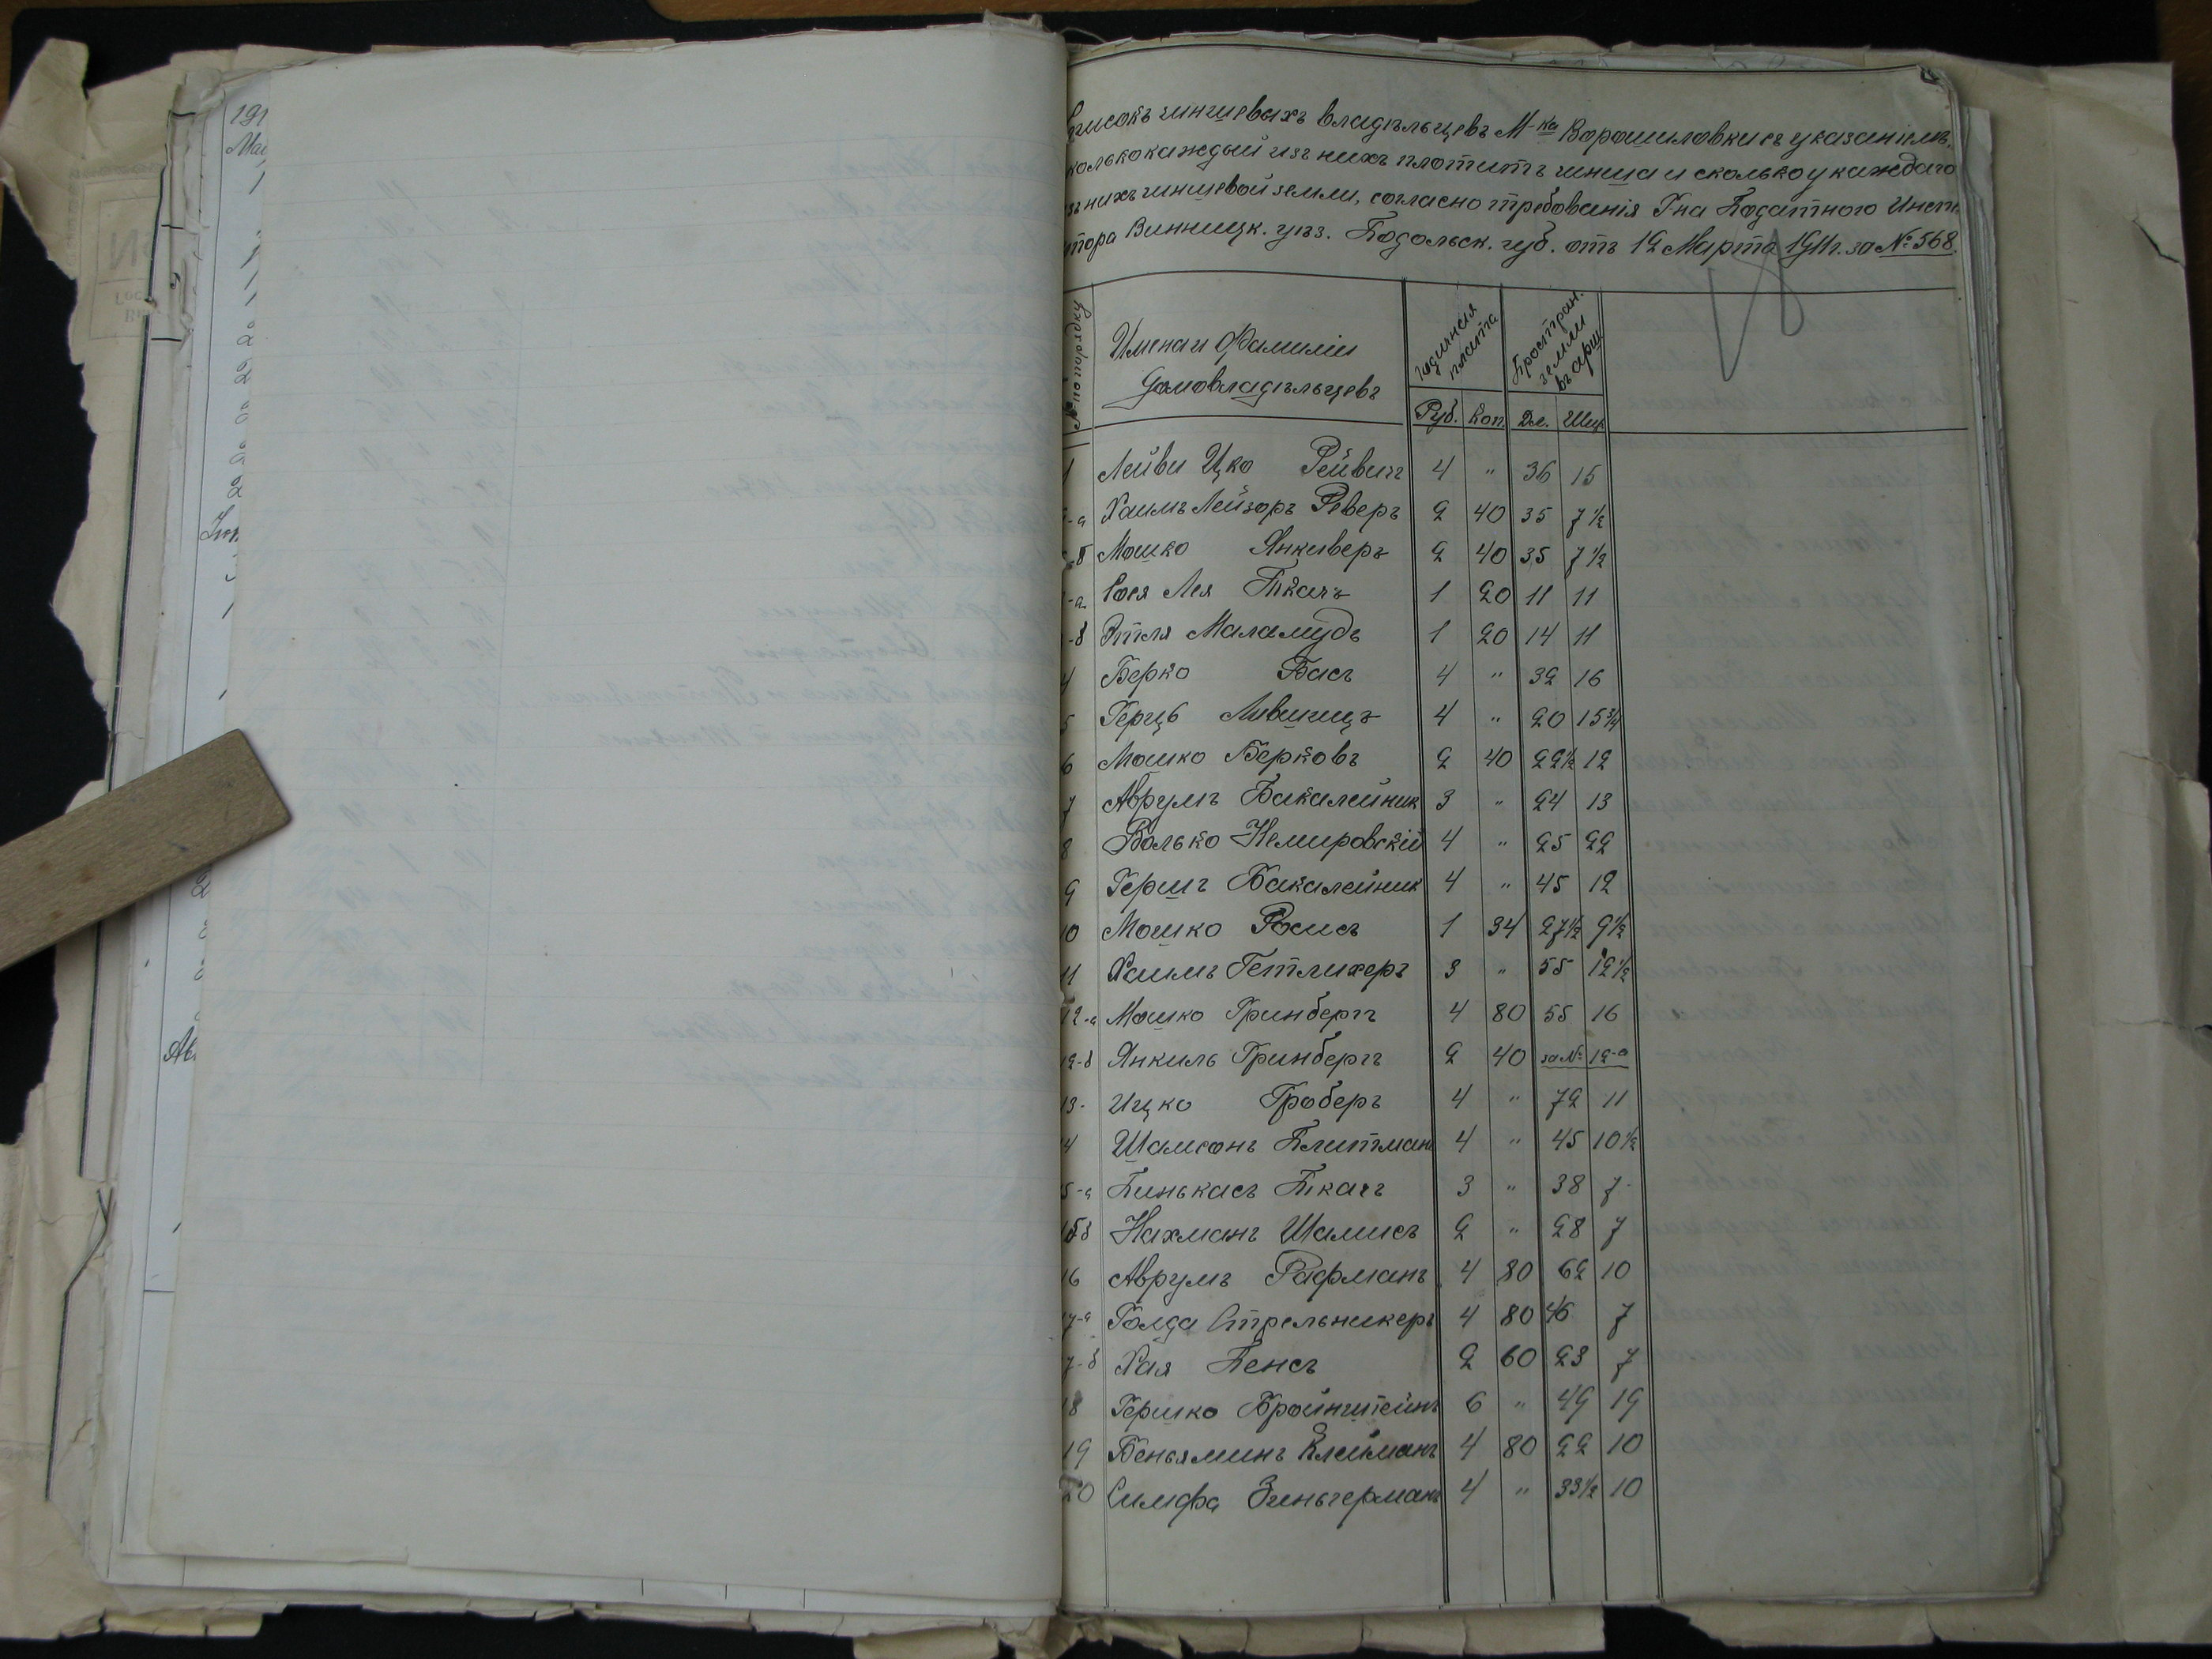 191
Ма
Списокъ чиншевыхъ владѣльцевъ М-ка Ворошиловки съ указаніемъ,
колько каждый изъ нихъ плотитъ чинша и сколько у каждаго
зъ нихъ чиншевой земли, согласно требованія Г-на Податного Инспе
тора Винницк. уѣз. Подольск. губ. отъ 12 Марта 1911 г. за № 568.
№ по порядку Имена и Фамиліи домовладѣльцевъ Годичная плата Простран. земли въ арш.
Руб. Коп. Дл. Шир.
1 Лейви Ицко Рейвич 4 " 36 15
-а Хаимъ Лейзоръ Реверъ 2 40 35 7 1/2
-б Мошко Янкиверъ 2 40 35 7 1/2
-а Сося Лея Ткачъ 1 20 11 11
-б Этля Маламудъ 1 20 14 11
4 Берко Басъ 4 " 32 16
5 Герцъ Лившицъ 4 " 20 15 3/4
6 Мошко Берковъ 2 40 22 1/2 12
7 Аврумъ Бакалейник 3 " 24 13
8 Волько Немировскій 4 " 25 22
9 Гершъ Бакалейник 4 " 45 12
10 Мошко Росисъ 1 34 27 1/2 9 1/2
11 Хаимъ Гетлихеръ 3 " 55 12 1/2
12-а Мошко Гринбергъ 4 80 55 16
12-б Янкиль Гринбергъ 2 40 за № 12-а
13- Ицко Гроберъ 4 " 72 11
4 Шамсонъ Плитман 4 " 45 10 1/2
5-а Пинькасъ Ткачъ 3 " 38 7
15б Нахманъ Шамисъ 2 " 28 7
16 Аврумъ Рафманъ 4 80 62 10
7-а Голда Стрельникеръ 4 80 46 7
7-б Хая Пенсъ 2 60 23 7
18 Гершко Бронштейнъ 6 " 49 19
19 Беньяминъ Клейманъ 4 80 22 10
20 Симфа Зингерманъ 4 " 33 1/2 10